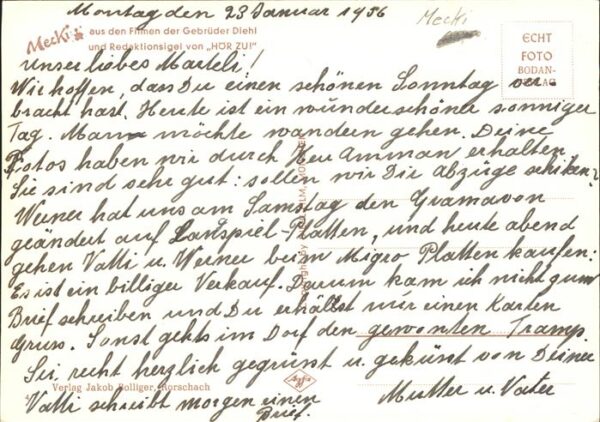 Montag den 23 Januar 1956
Mecki
Mecki aus den Filmen der Gebrüder Diehl
und Redaktionsigel von „HÖR ZU!"
ECHT
FOTO
BODAN-
VERLAG
Unser liebes Marteli!
Wir hoffen, dass Du einen schönen Sonntag ver
bracht hast. Heute ist ein wunderschöner sonniger
Tag. Mann möchte wandern gehen. Deine
Fotos haben wir durch Herr Amman erhalten
Sie sind sehr gut: sollen wir Dir Abzüge schiken?
Werner hat uns am Samstag den Gramavon
geändert auf Lanspiel-Platten, und heute abend
gehen Vatti u. Werner beim Migro Platten kaufen:
Es ist ein billiger Verkauf. Darum kam ich nicht zum
Brief schreiben und Du erhälst mir einen Karten
Gruss. Sonst gehts im Dorf den gewonten Tramp.
Sei recht herzlich gegrünt u. gekünt von Deiner
Mutter u. Vater
Agfa
Verlag Jakob Bolliger, Rorschach
Vatti schreibt morgen einen
Brief.